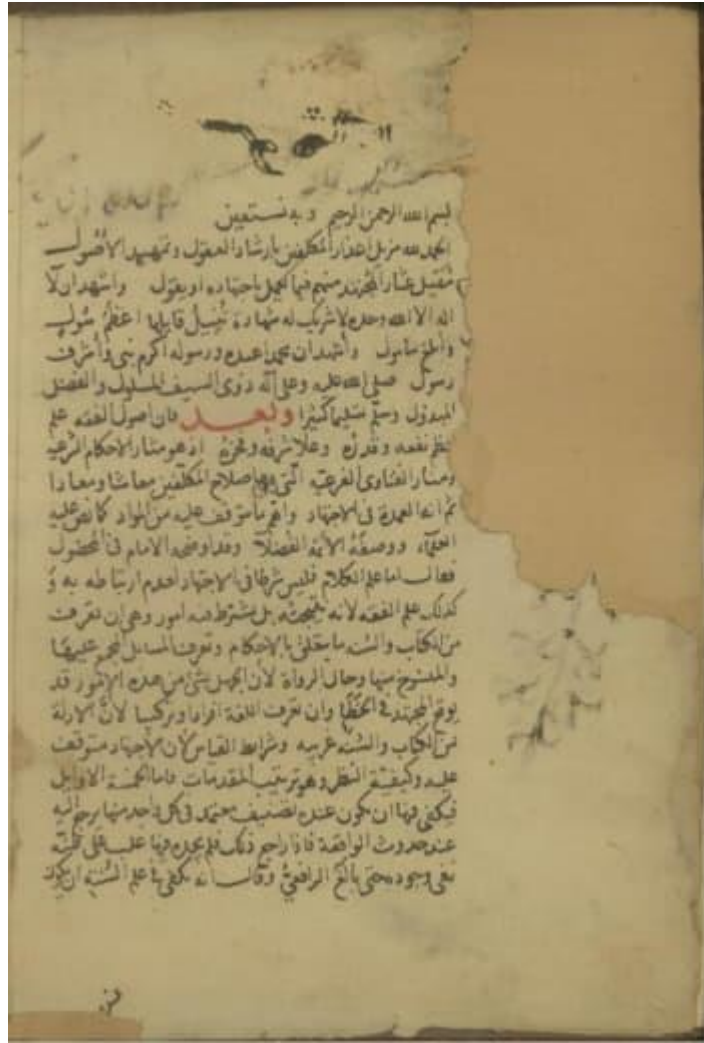 بسم الله الرحمن الرحيم وبه نستعين
الحمد لله مزيل اعذار المكلفين بارشاد العقول وتمهيد الاصول
مقيل عثار المجتهد منهم فيما يعمل باجتهاده او يقول واشهد ان لا
اله الا الله وحده لا شريك له شهادة تنيل قايلها اعظم سول
وابلغ مامول واشهد ان محمدا عبده ورسوله اكرم نبي واشرف
رسول صلى الله عليه وعلى آله ذوى السيف المسلول والفضل
المبذول وسلم تسليما كثيرا وبعد فان اصول الفقه علم
عظم نفعه وقدره وعلا شرفه وفخره اذ هو مثار الاحكام الشرعية
ومنار الفتاوى الفرعية التى بها صلاح المكلفين معاشا ومعادا
ثم انه العمدة فى الاجتهاد واهم ما يتوقف عليه من المواد كما نص عليه
العلماء ووصفه الائمة الفضلاء وقد اوضحه الامام فى المحصول
فقال اما علم الكلام فليس شرطا فى الاجتهاد لعدم ارتباطه به و
كذلك علم الفقه لانه نتيجته بل يشترط فيه امور وهى ان تعرف
من الكتاب والسنة ما يتعلق بالاحكام وتعرف المسايل المجمع عليها
والمنسوخ منها وحال الرواة لان الجهل بشئ من هذه الامور قد
يوقع المجتهد فى الخطا وان تعرف اللغة افرادا وتركيبا لان الادلة
من الكتاب والسنة عربيه وشرايط القياس لان الاجتهاد متوقف
عليه وكيفية النظر وهو ترتيب المقدمات فاما الخمسة الاوايل
فيكفى فيها ان يكون عنده تصنيف معتمد فى كل واحد منها يرجع اليه
عند حدوث الواقعة فاذا راجع ذلك فلم يجده فيها غلب على ظنه
نفى وجوده حتى بالغ الرافعي وقال انه يكفى فى علم السنة ان يكون